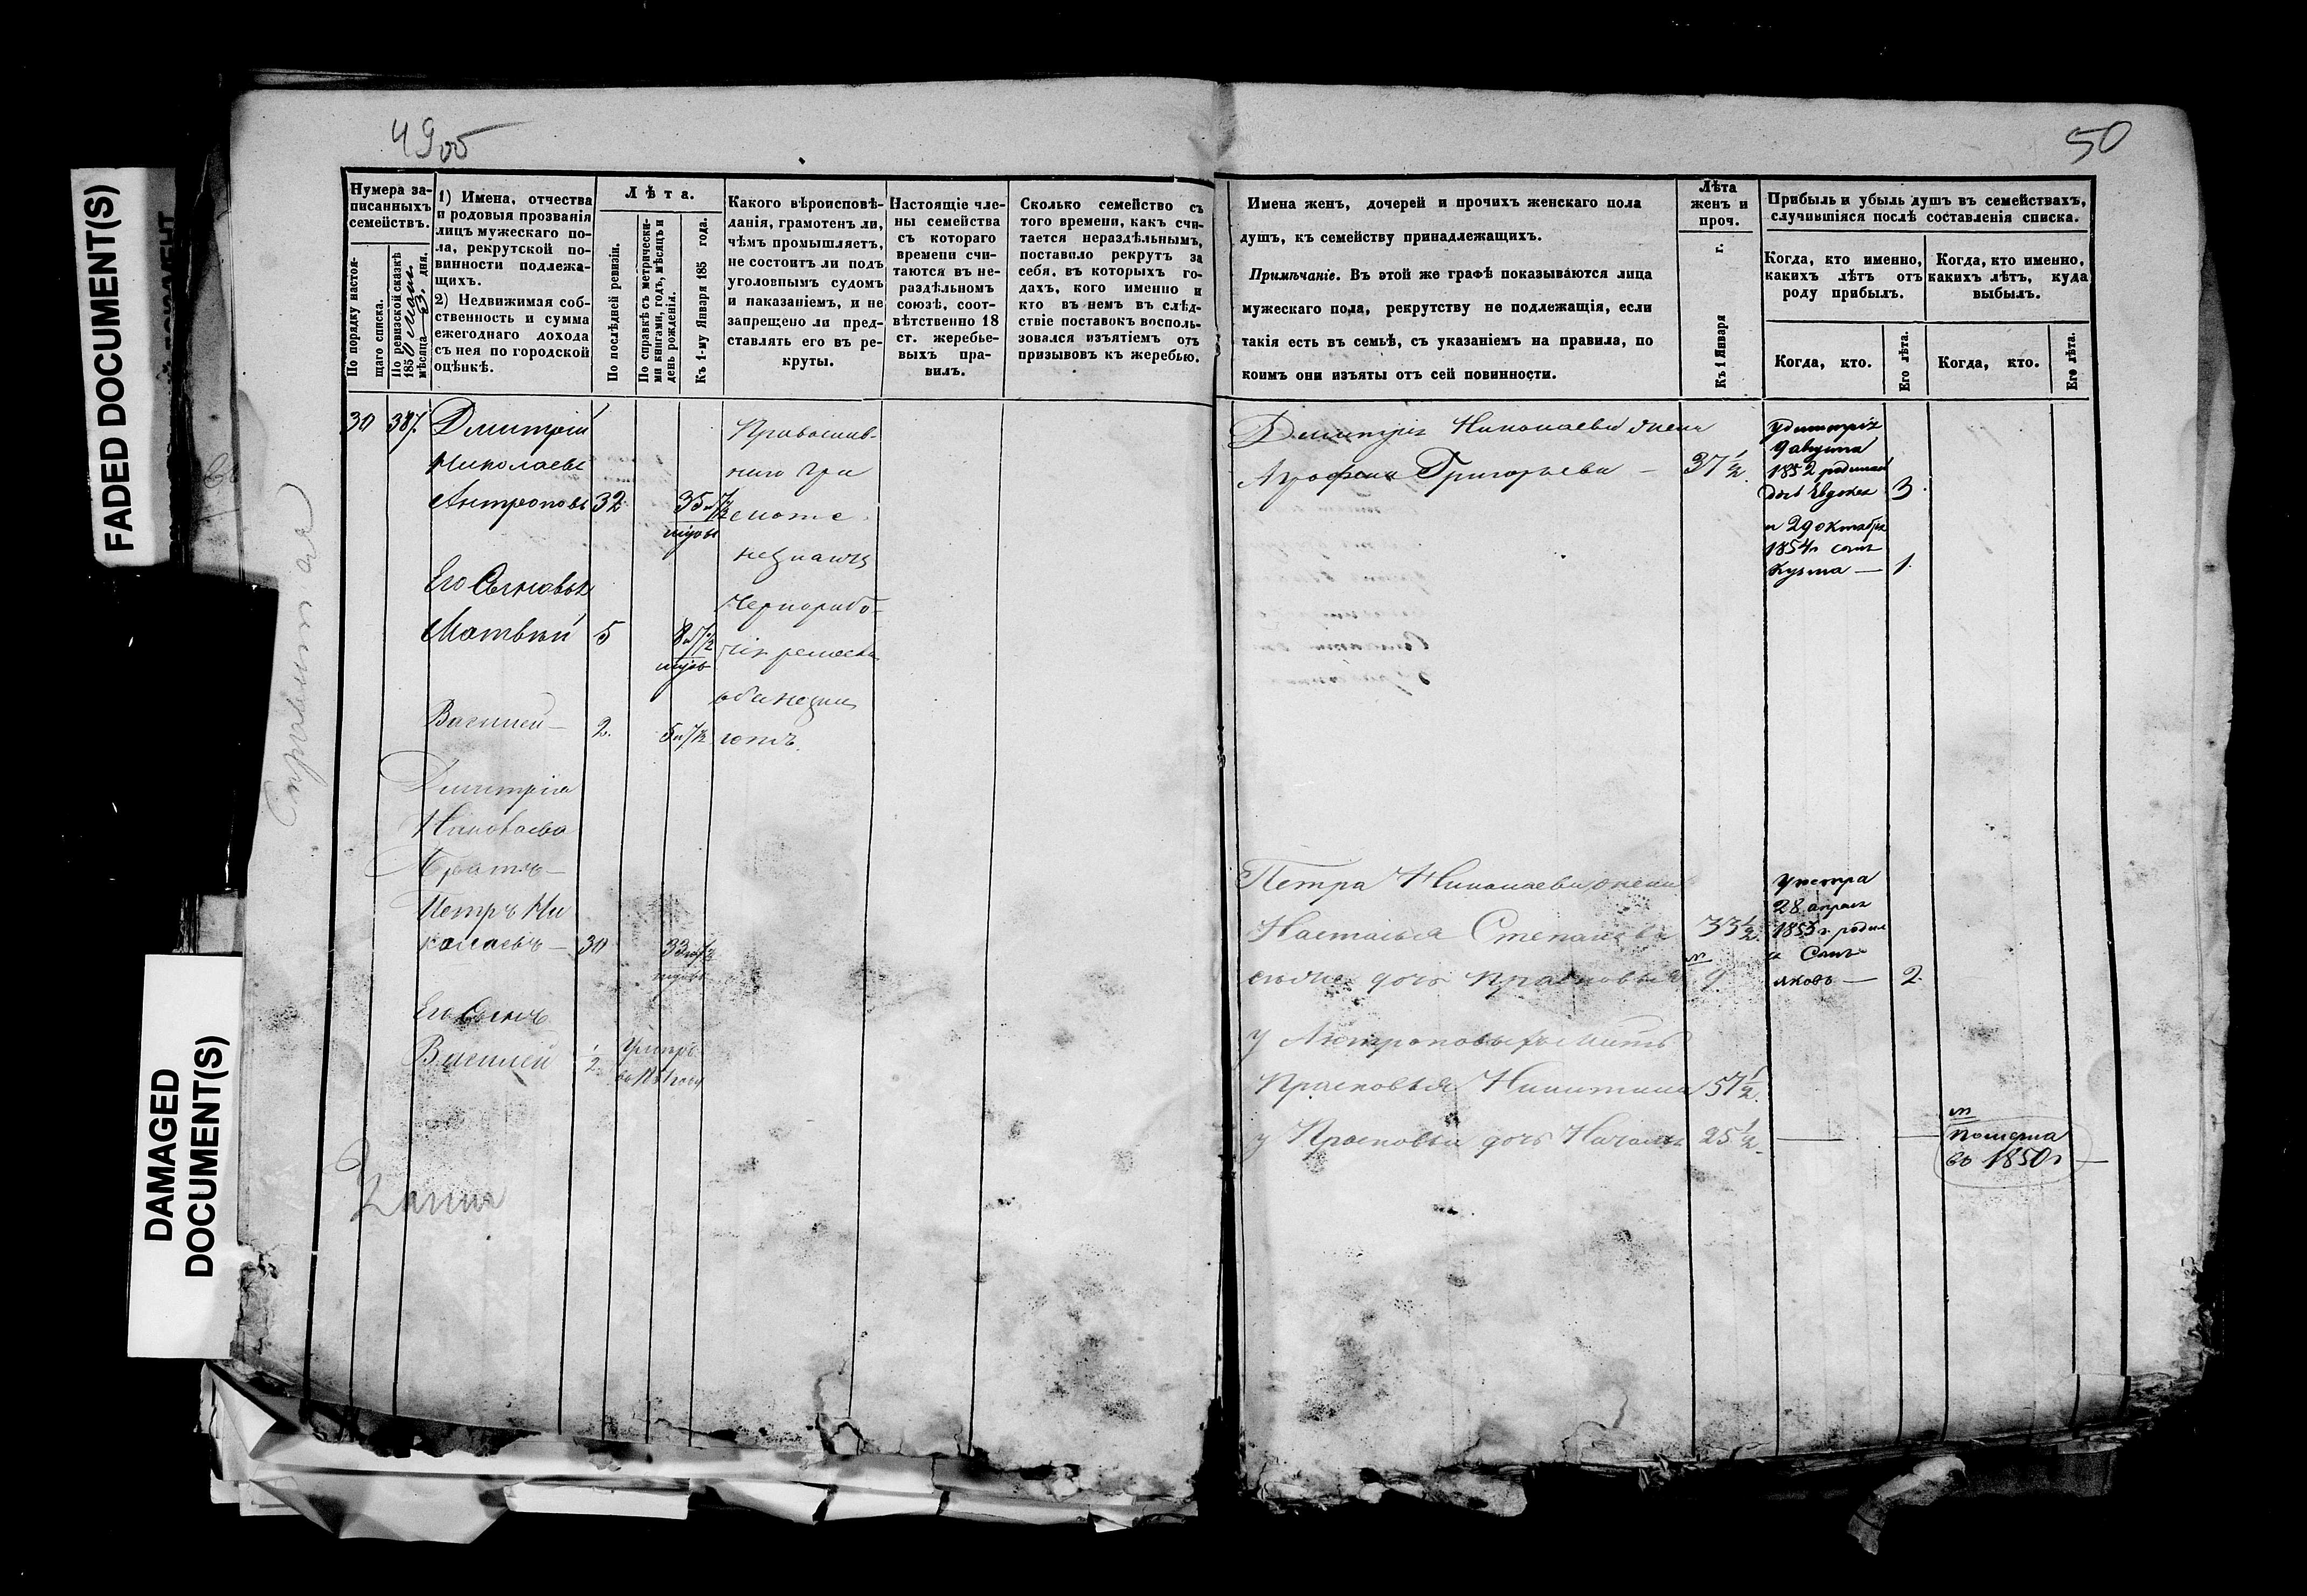 FADED DOCUMENT(S)
DAMAGED
DOCUMENT(S)
49об
50
Нумера за-
писанныхъ
семействъ.
По порядку настоя-
щаго списка.
По ревизской сказкѣ
1850
мѣсяца 23 дня.
1) Имена, отчества
и родовыя прозванія
лицъ мужескаго по-
ла, рекрутской по-
винности подлежа-
щихъ.
2) Недвижимая соб-
ственность и сумма
ежегоднаго дохода
съ нея по городской
оцѣнкѣ.
Лѣта.
По послѣдней ревизіи.
По справкѣ съ метрически-
ми книгами, годъ, мѣсяцъ и
день рожденія.
Къ 1-му Января 185 года.
Какого вѣроисповѣ-
данія, грамотенъ ли,
чѣмъ промышляетъ,
не состоитъ ли подъ
уголовнымъ судомъ
и наказаніемъ, и не
запрещено ли пред-
ставлять его въ ре-
круты.
Настоящіе чле-
ны семейства
съ котораго
времени счи-
таются въ не-
раздѣльномъ
союзѣ, соот-
вѣтственно 18
ст. жеребье-
выхъ пра-
вилъ.
Сколько семейство съ
того времени, какъ счи-
тается нераздѣльнымъ,
поставило рекрутъ за
себя, въ которыхъ го-
дахъ, кого именно и
кто въ немъ въ слѣд-
ствіе поставокъ восполь-
зовался изъятіемъ отъ
призывовъ къ жеребью.
Имена женъ, дочерей и прочихъ женскаго пола
душъ, къ семейству принадлежащихъ.
Примѣчаніе. Въ этой же графѣ показываются лица
мужескаго пола, рекрутству не подлежащія, если
такія есть въ семьѣ, съ указаніемъ на правила, по
коимъ они изъяты отъ сей повинности.
Лѣта
женъ и
проч.
Къ 1 Января г.
Прибыль и убыль душъ въ семействахъ,
случившіяся послѣ составленія списка.
Когда, кто именно,
какихъ лѣтъ отъ
роду прибылъ.
Когда, кто именно,
какихъ лѣтъ, куда
выбылъ.
Когда, кто.
Его лѣта.
Когда, кто.
Его лѣта.
30 387. Дмитрій
Николаевъ
Антроповъ 32 35 и 7/12
Его Сыновья
Матвѣй 5 8 и 7/12
Василей — 2. 5 и 7/12
Православ-
наго гра
мотѣ
незнаютъ
Чернорабо-
чіе ремесла
Дмитрія
Николаева
Братъ —
Петръ Ни
колаевъ — 30 33
Его Сынъ
Василей 1/2 умеръ
въ 1851 году
Дмитрія Николаева жена
Аграфена Григорьева — 37 1/2.
Петра Николаева жена
Настасья Степанова 33 1/2.
дочь Прасковья 9
у Антроповыхъ мать
Прасковья Никитина 57 1/2.
у Прасковьи дочь Наталья 25 1/2.
у Дмитрія
9 августа
1852 родилась
дочь Евдокея 3.
и 29 октября
1854 г сынъ
Кузма — 1.
У петра
28 апреля
1853 г. родил
ся Сынъ
яковъ — 2.
померла
въ 1850 г —